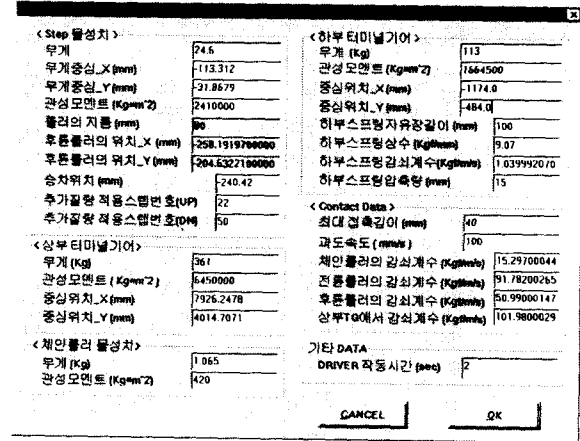 < Step 물성치 >
무게 24.6
무게중심_X (mm) -113.312
무게중심_Y (mm) -31.8679
관성모멘트 (Kg=m^2) 2410000
롤러의 지름 (mm) 80
후륜롤러의 위치_X (mm) -258.1919700000
후륜롤러의 위치_Y (mm) -204.6327100000
승차위치 (mm) -240.42
추가질량 적용스텝번호(UP) 22
추가질량 적용스텝번호(DN) 50
<상부 터미널기어>
무게 (Kg) 361
관성모멘트 ( Kg=m^2 ) 6450000
중심위치_X (mm) 7926.2478
중심위치_Y (mm) 4014.7071
<체인롤러 물성치>
무게 (Kg) 1.065
관성모멘트 (Kg=m^2) 420
<하부 터미널기어>
무게 (Kg) 113
관성모멘트 (Kg=m^2) 7664500
중심위치_X (mm) -1174.0
중심위치_Y (mm) -484.0
하부스프링자유장길이 (mm) 100
하부스프링상수 (Kgf/mm) 9.07
하부스프링감쇠계수 (Kgf/mm/s) 1.039992070
하부스프링압축량 (mm) 15
< Contact Data >
최대 접촉깊이 (mm) 40
과도속도 ( mm/s ) 100
체인롤러의 감쇠계수 (Kgf/mm/s) 15.29700044
전륜롤러의 감쇠계수 (Kgf/mm/s) 91.78200265
후륜롤러의 감쇠계수 (Kgf/mm/s) 50.99000147
상부TG에서 감쇠계수 (Kgf/mm/s) 101.9800029
기타 DATA
DRIVER 작동시간 (sec) 2
CANCEL OK